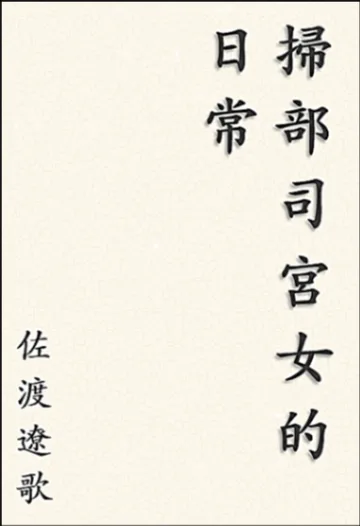 掃部司宮女的
日常
佐渡遼歌